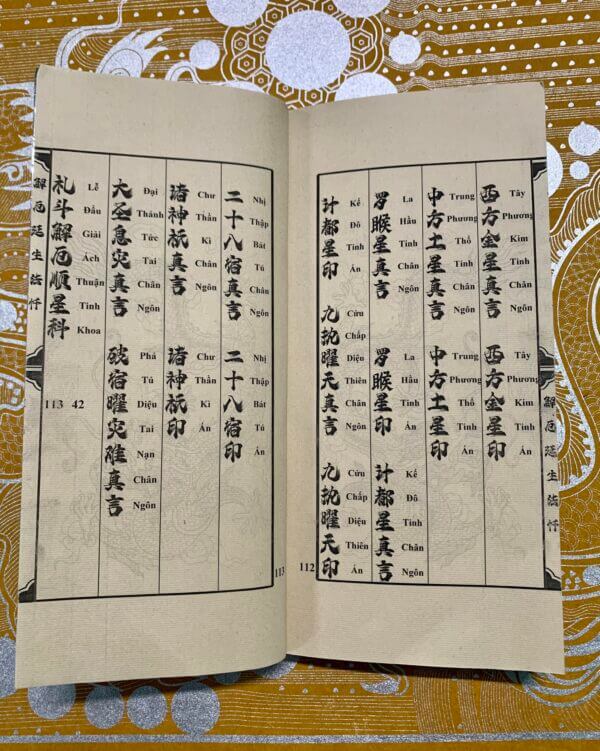 解厄延生法忏
西方金星真言
Tây Phương Kim Tinh Chân Ngôn
西方金星印
Tây Phương Kim Tinh Ấn
中方土星真言
Trung Phương Thổ Tinh Chân Ngôn
中方土星印
Trung Phương Thổ Tinh Ấn
罗睺星真言
La Hầu Tinh Chân Ngôn
罗睺星印
La Hầu Tinh Ấn
计都星真言
Kế Đô Tinh Chân Ngôn
计都星印
Kế Đô Tinh Ấn
九执曜天真言
Cửu Chấp Diệu Thiên Chân Ngôn
九执曜天印
Cửu Chấp Diệu Thiên Ấn
112
113
二十八宿真言
Nhị Thập Bát Tú Chân Ngôn
二十八宿印
Nhị Thập Bát Tú Ấn
诸神祇真言
Chư Thần Kì Chân Ngôn
诸神祇印
Chư Thần Kì Ấn
大圣息灾真言
Đại Thánh Tức Tai Chân Ngôn
破宿曜灾难真言
Phá Tú Diệu Tai Nạn Chân Ngôn
礼斗解厄顺星科
Lễ Đẩu Giải Ách Thuận Tinh Khoa
113 42
解厄延生法忏